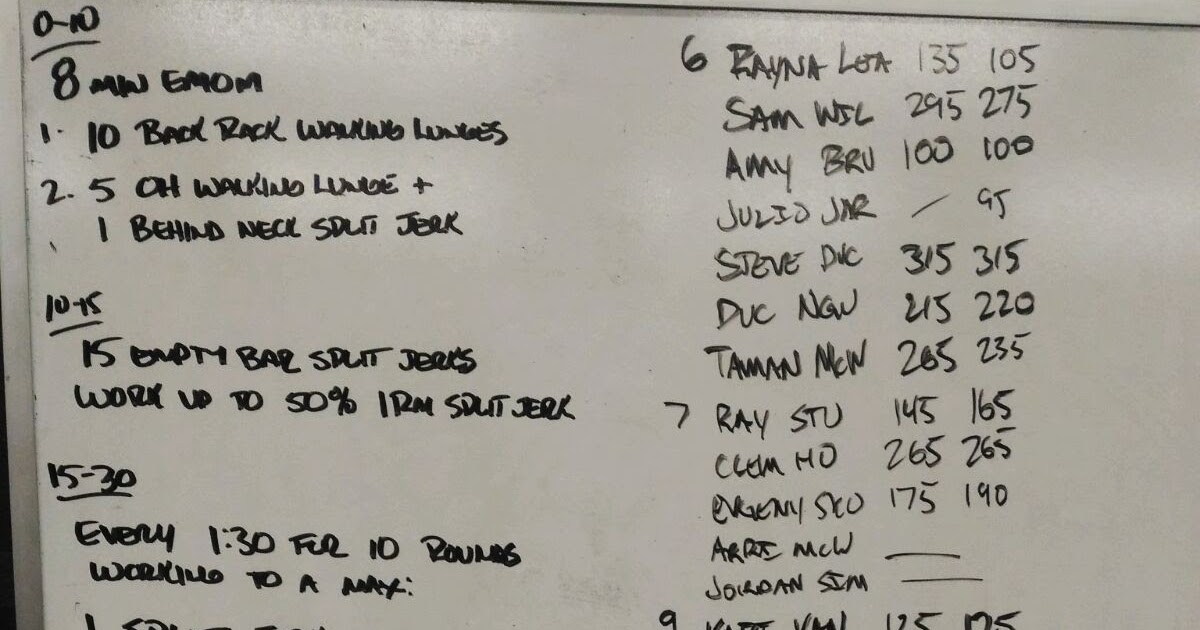 0-10
8 MIN EMOM
1. 10 BACK RACK WALKING LUNGES
2. 5 OH WALKING LUNGE +
1 BEHIND NECK SPLIT JERK
10-15
15 EMPTY BAR SPLIT JERKS
WORK UP TO 50% 1RM SPLIT JERK
15-30
EVERY 1:30 FOR 10 ROUNDS
WORKING TO A MAX:
6 RAYNA LOA 135 105
SAM WIL 295 275
AMY BRU 100 100
JULIO JAR / 95
STEVE DUC 315 315
DUC NGU 215 220
TAMAN MCW 265 235
7 RAY STU 145 165
CLEM HO 265 265
EVGENY SKO 175 190
ARRI MCW ——
JORDAN SIM ——
9